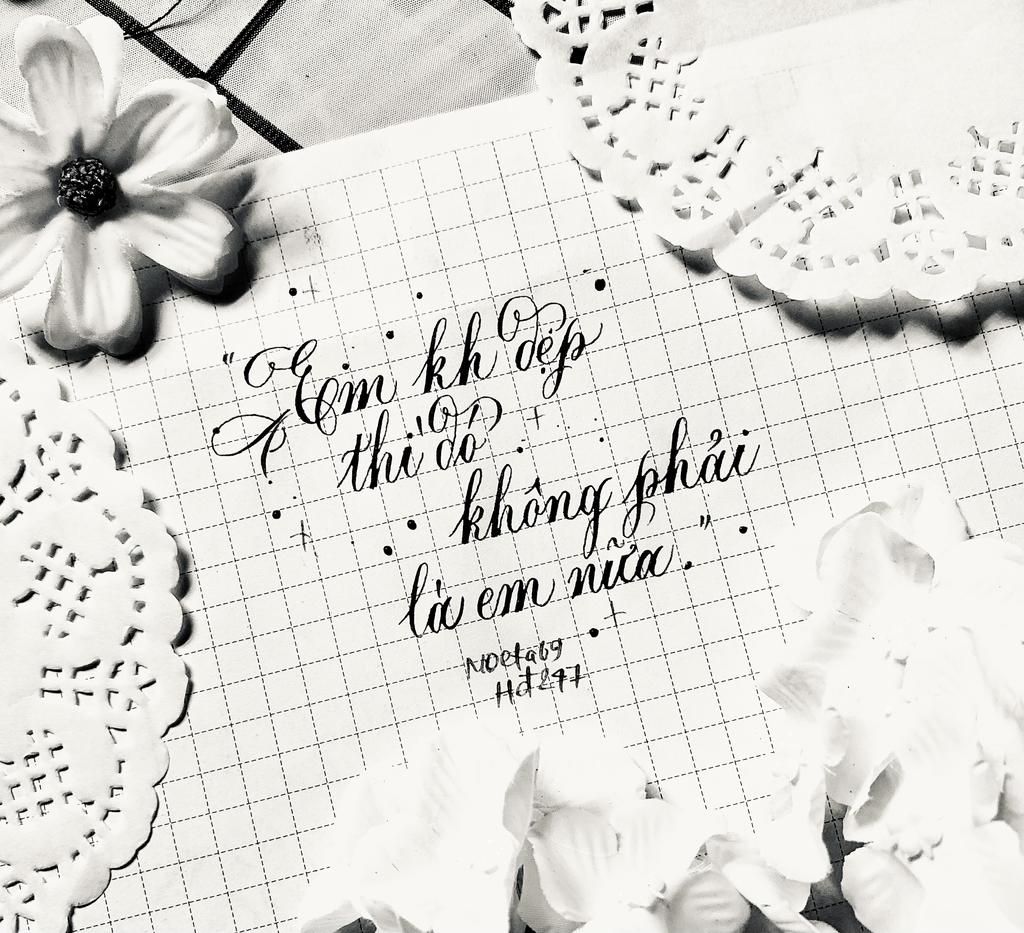 "Em kh đẹp
thì đó
không phải
là em nữa."
Noeta69
Hd247